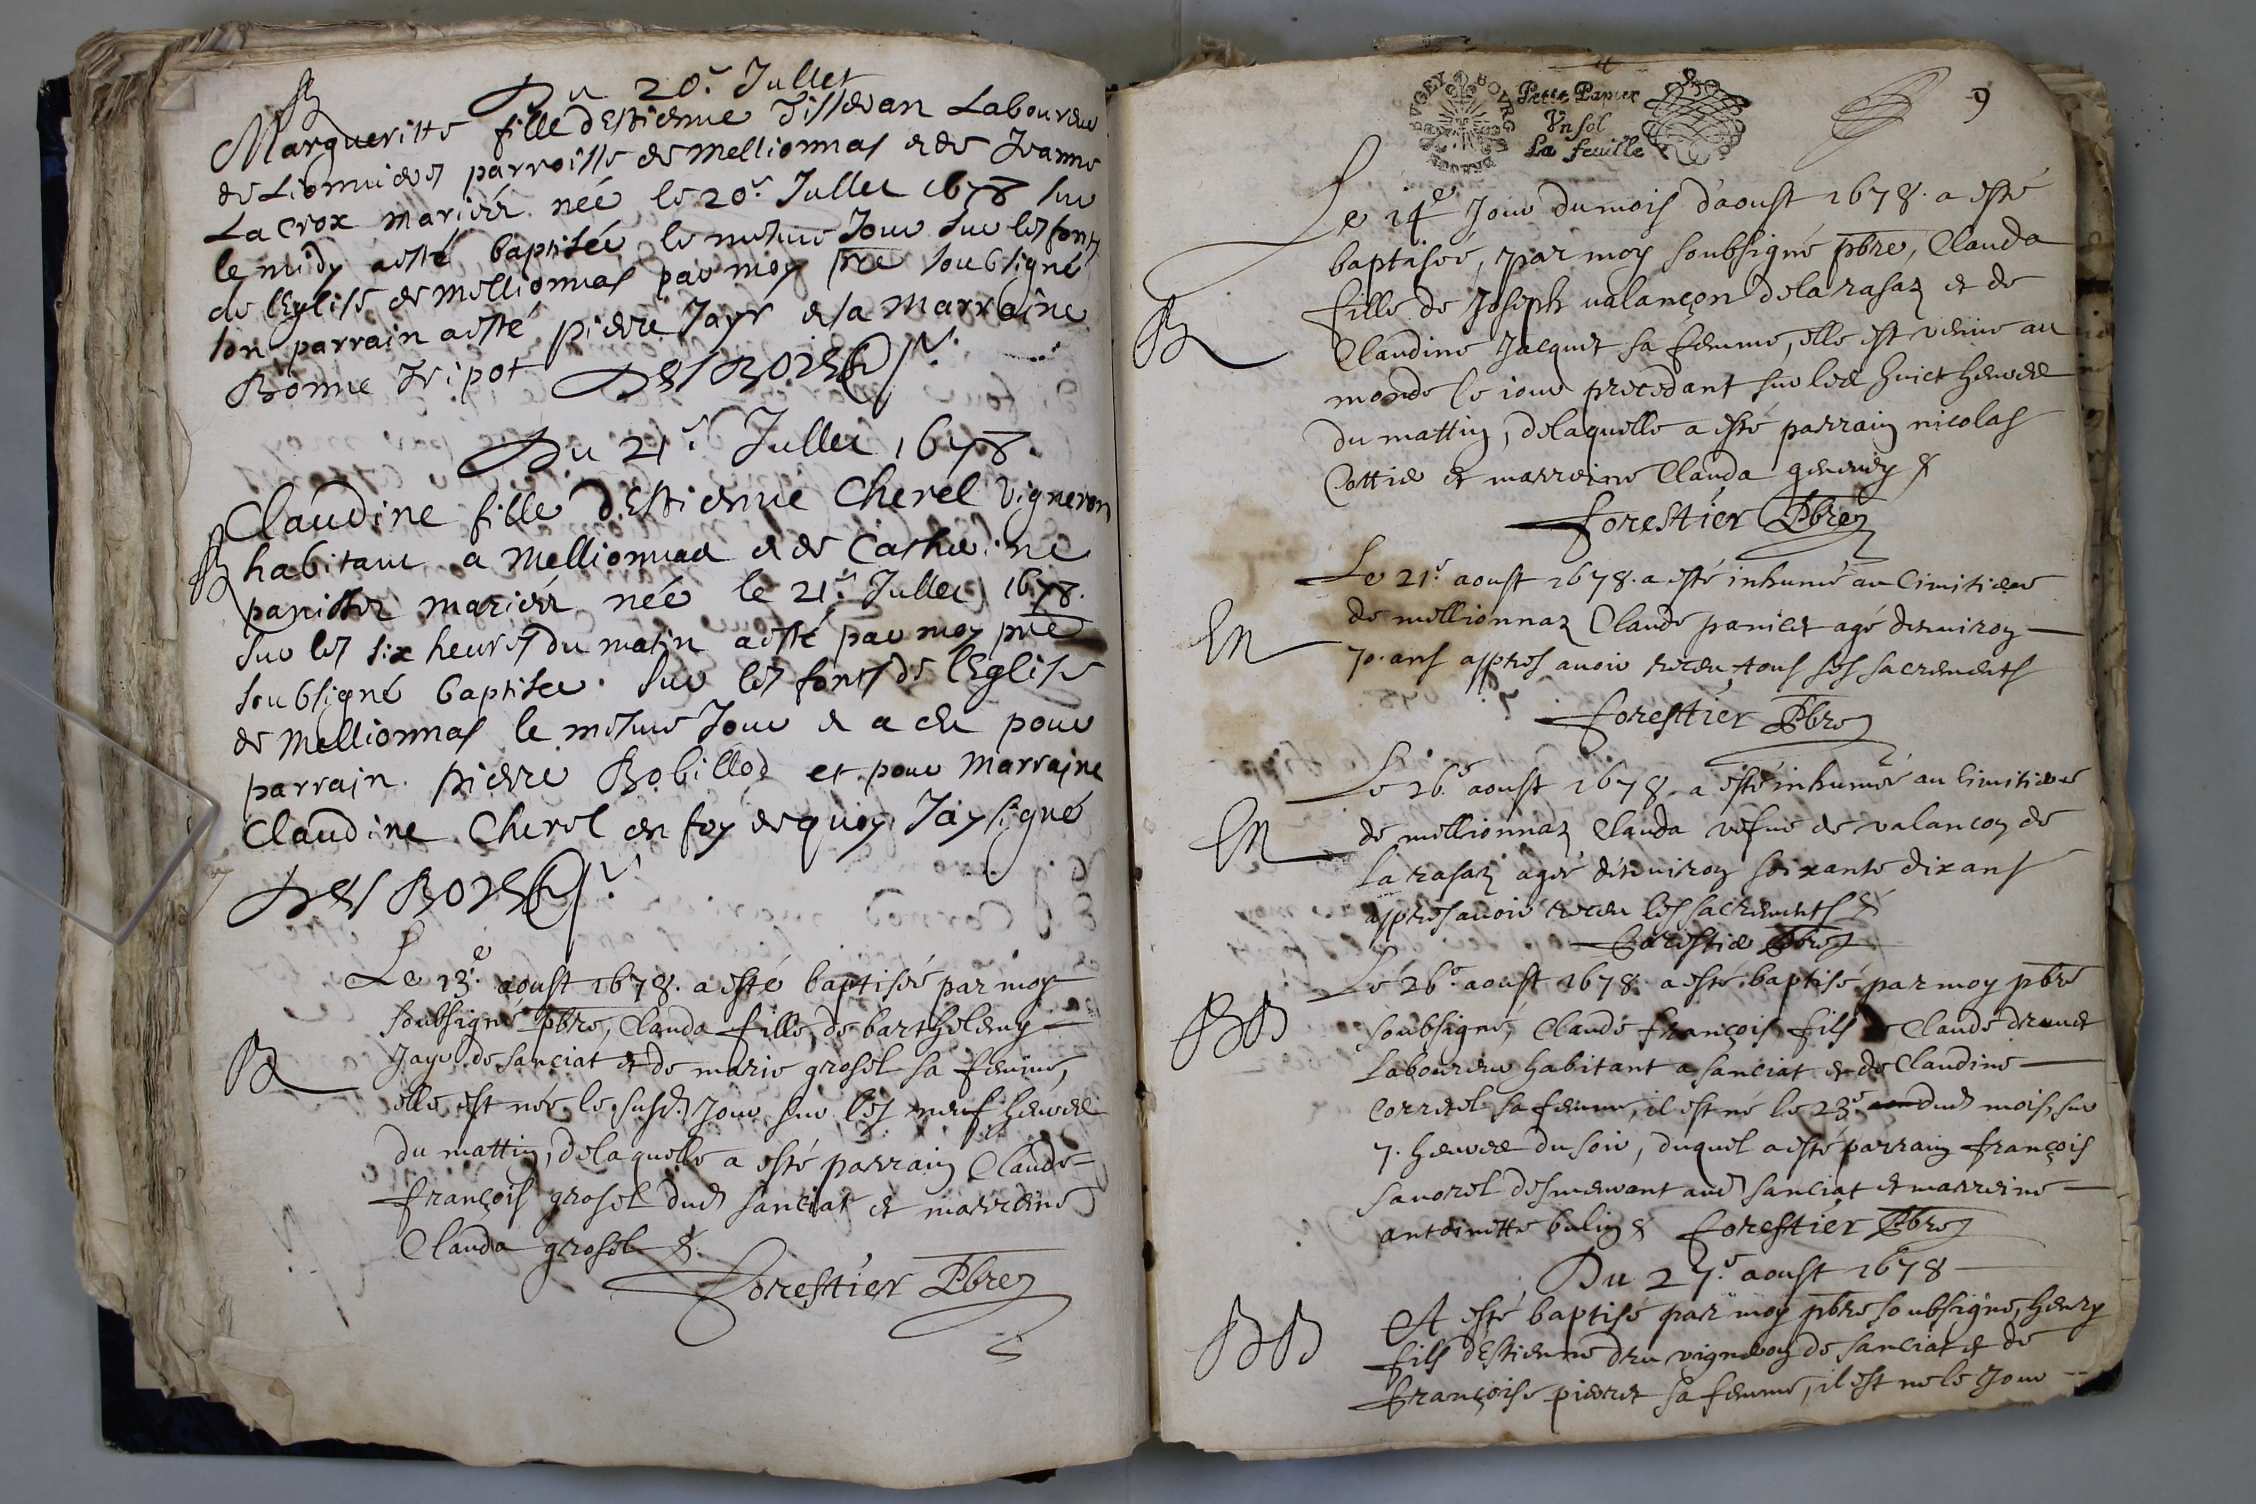 Du 20.e Jullet
B
Margueritte fille d'Estienne Tisseran Laboureur
de Lionnieres parroisse de Mellionnas & de Jeanne
La Crox mariéz née le 20.e Jullet 1678 sur
le midy a esté baptisée le mesme Jour sur les fonts
de l'Eglise de Mellionnas par moy pre soubsigné
son parrain a esté pierre Jayr & sa Marraine
Bonne Tripot
Du 21.e Jullet 1678.
Claudine fille d'Estienne Cherel vigneron
B
habitant a Mellionnas & de Catherine
panisset mariéz née le 21.e Jullet 1678.
sur les six heures du matin a esté par moy pre
soubsigné baptisée sur les fonts de l'Eglise
de Mellionnas le mesme Jour & a eu pour
parrain pierre Bobillod et pour Marraine
Claudine Cherel en foy de quoy J'ay signé
Le 13.e aoust 1678. a esté baptisée par moy
soubsigné pbre, Clauda fille de barthelemy
B
Jayr de sanciat et de marie grosel sa femme,
elle est née le susd. Jour sur les neuf heures
du mattin, de laquelle a esté parrain Claude=
françois grosel dud sanciat et marreine
Clauda grosel &.
Forestier Pbre
BVGEY BOVRG
Petit Papier
Vn sol
La feuille
9
Le 14.e Jour du mois d'aoust 1678. a esté
baptisée, par moy soubsigné pbre, Clauda
fille de Joseph valançon de la rasaz et de
B
Claudine Jacquet sa femme, elle est venue au
monde le iour precedant sur les huict heures
du mattin, de laquelle a esté parrain nicolas
Cottier et marreine Clauda &
Forestier Pbre
Le 21.e aoust 1678. a esté inhumé au Cimitiere
de mellionnaz Claude panicet agé d'enuiron
En
70. ans appres auoir receu tous ses sacrements
Forestier Pbre
Le 26.e aoust 1678. a esté inhumée au Cimitiere
En
de mellionnaz Clauda vefue de valançon de
la rasaz agée d'enuiron soixante dix ans
appres auoir receu les sacrements &
Forestier Pbre
Le 26.e aoust 1678. a esté baptisé par moy pbre
BB
soubsigné, Claude françois fils de Claude druet
Laboureur habitant a sanciat et de Claudine
Correrel sa femme, il est né le 23.e dud mois, sur
7. heures du soir, duquel a esté parrain françois
sauorel demeurant aud sanciat et marreine
antoinette bulin & Forestier Pbre
Du 27.e aoust 1678
A esté baptisé par moy pbre soubsigné, henry
BB
fils d'Estienne dru vigneron de sanciat & de
françoise pierret sa femme, il est né le Jour